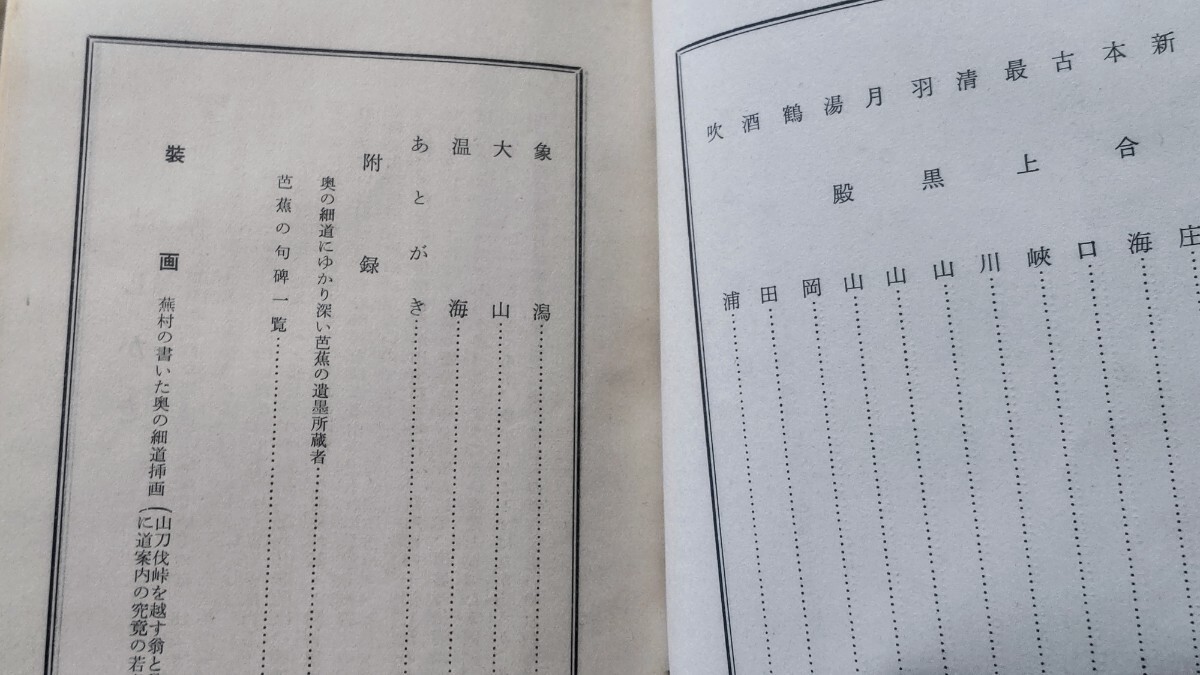 新庄
本合海
古口
最上峽
清川
羽黒山
月山
湯殿山
鶴岡
酒田
吹浦
象潟
大山
温海
あとがき
附録
奥の細道にゆかり深い芭蕉の遺墨所蔵者
芭蕉の句碑一覧
裝画 蕪村の書いた奥の細道挿画(山刀伐峠を越す翁と
に道案内の究竟の若